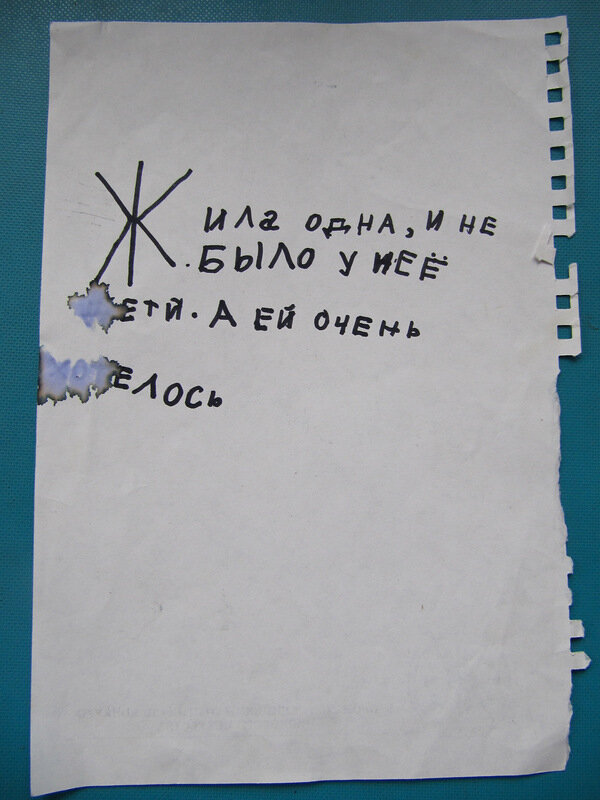 Жила одна, и не
было у неё
детй. А ей очень
хотелось